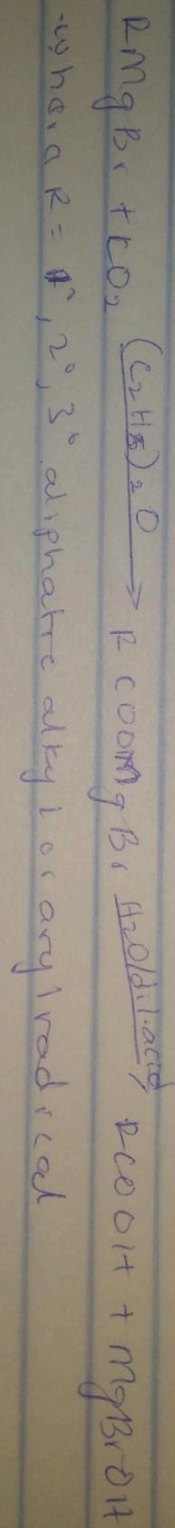 RMgBr + CO2 (C2H5)2O → RCOOMgBr H2O/dil.acid → RCOOH + MgBrOH
-where R = 1°, 2°, 3° aliphatic alkyl or aryl radical